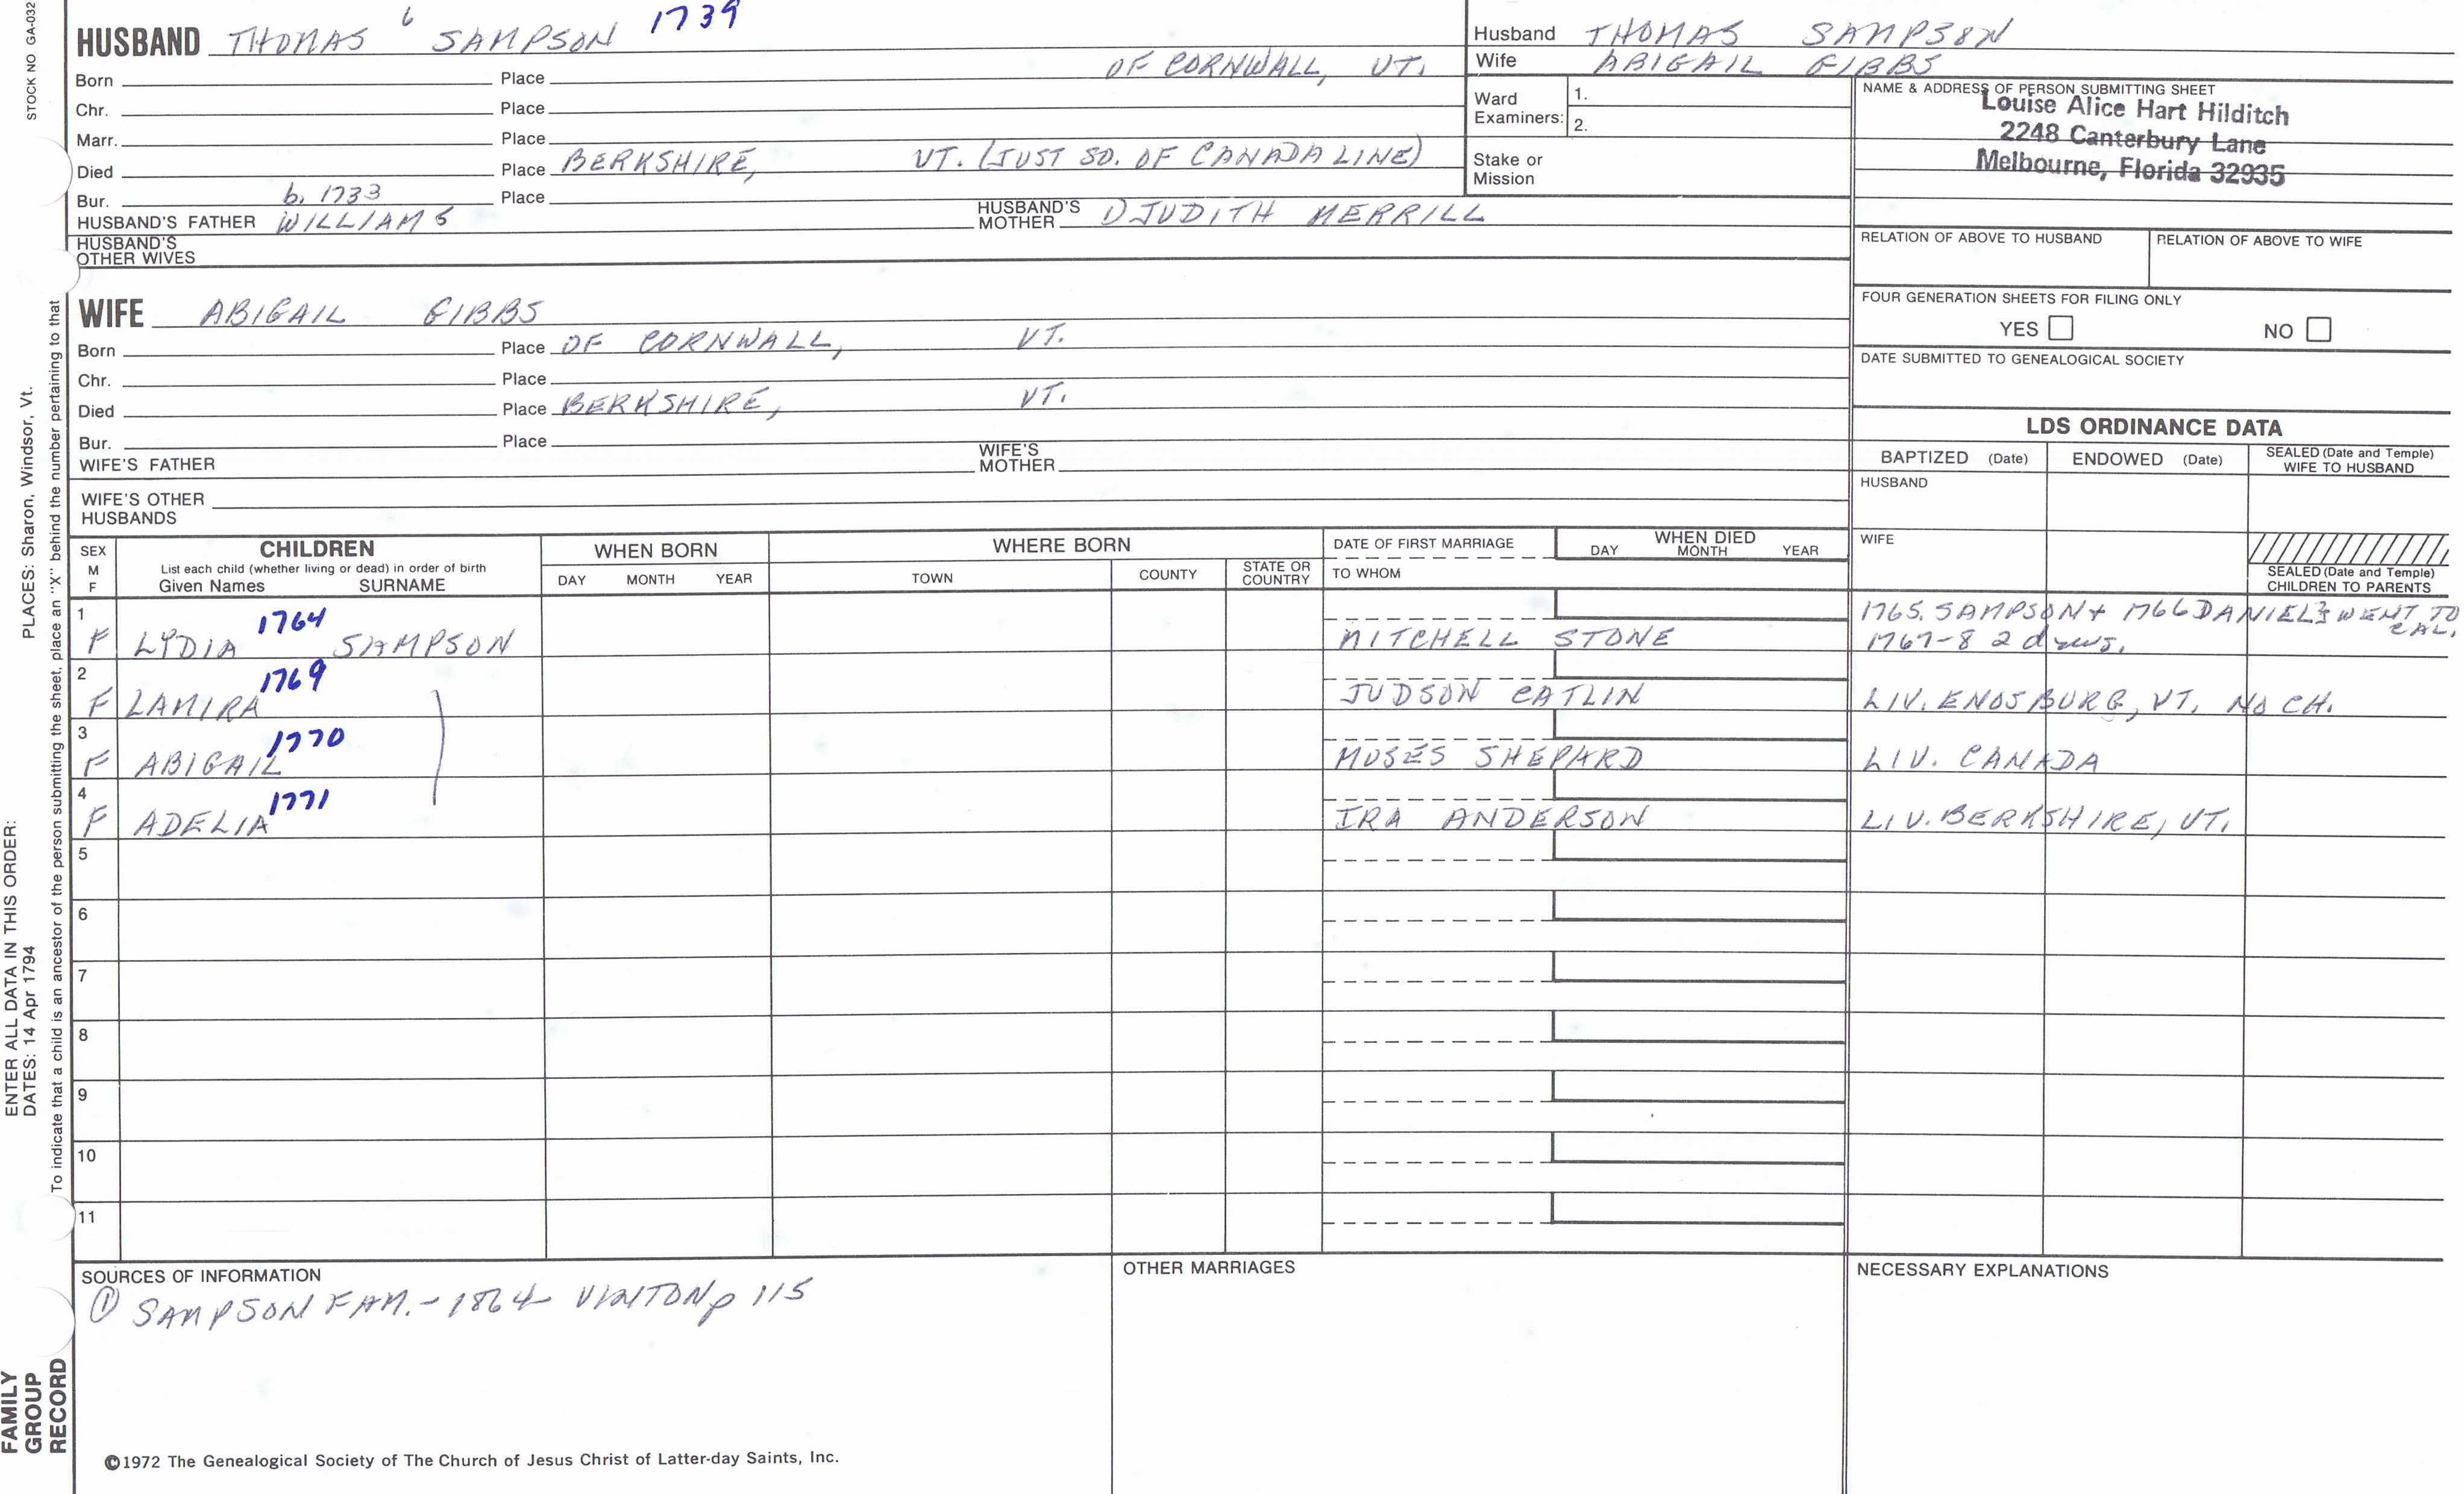 STOCK NO GA-032
PLACES: Sharon, Windsor, Vt.
ENTER ALL DATA IN THIS ORDER:
DATES: 14 Apr 1794
To indicate that a child is an ancestor of the person submitting the sheet, place an "X" behind the number pertaining to that
FAMILY
GROUP
RECORD
HUSBAND THOMAS 6 SAMPSON 1739
Born Place OF CORNWALL, VT.
Chr. Place
Marr. Place
Died Place BERKSHIRE, VT. (JUST SO. OF CANADA LINE)
Bur. b. 1733 Place
HUSBAND'S FATHER WILLIAM 5 HUSBAND'S MOTHER 1) JUDITH MERRILL
HUSBAND'S
OTHER WIVES
Husband THOMAS SAMPSON
Wife ABIGAIL GIBBS
Ward
Examiners:
1.
2.
Stake or
Mission
NAME & ADDRESS OF PERSON SUBMITTING SHEET
Louise Alice Hart Hilditch
2248 Canterbury Lane
Melbourne, Florida 32935
RELATION OF ABOVE TO HUSBAND RELATION OF ABOVE TO WIFE
FOUR GENERATION SHEETS FOR FILING ONLY
YES NO
DATE SUBMITTED TO GENEALOGICAL SOCIETY
WIFE ABIGAIL GIBBS
Born Place OF CORNWALL, VT.
Chr. Place
Died Place BERKSHIRE, VT.
Bur. Place
WIFE'S FATHER WIFE'S MOTHER
WIFE'S OTHER
HUSBANDS
LDS ORDINANCE DATA
BAPTIZED (Date) ENDOWED (Date) SEALED (Date and Temple) WIFE TO HUSBAND
HUSBAND
WIFE
SEALED (Date and Temple)
CHILDREN TO PARENTS
SEX
M
F
CHILDREN
List each child (whether living or dead) in order of birth
Given Names SURNAME
WHEN BORN
DAY MONTH YEAR
WHERE BORN
TOWN COUNTY STATE OR COUNTRY
DATE OF FIRST MARRIAGE
TO WHOM
WHEN DIED
DAY MONTH YEAR
1 1764 1765. SAMPSON + 1766 DANIEL} WENT TO CAL.
F LYDIA SAMPSON MITCHELL STONE 1767-8 2 daus.
2 1769
F LAMIRA JUDSON CATLIN LIV. ENOSBURG, VT. NO CH.
3 1770
F ABIGAIL MOSES SHEPARD LIV. CANADA
4 1771
F ADELIA IRA ANDERSON LIV. BERKSHIRE, VT.
5
6
7
8
9
10
11
SOURCES OF INFORMATION
① SAMPSON FAM. - 1864 VINTON p 115
OTHER MARRIAGES
NECESSARY EXPLANATIONS
©1972 The Genealogical Society of The Church of Jesus Christ of Latter-day Saints, Inc.